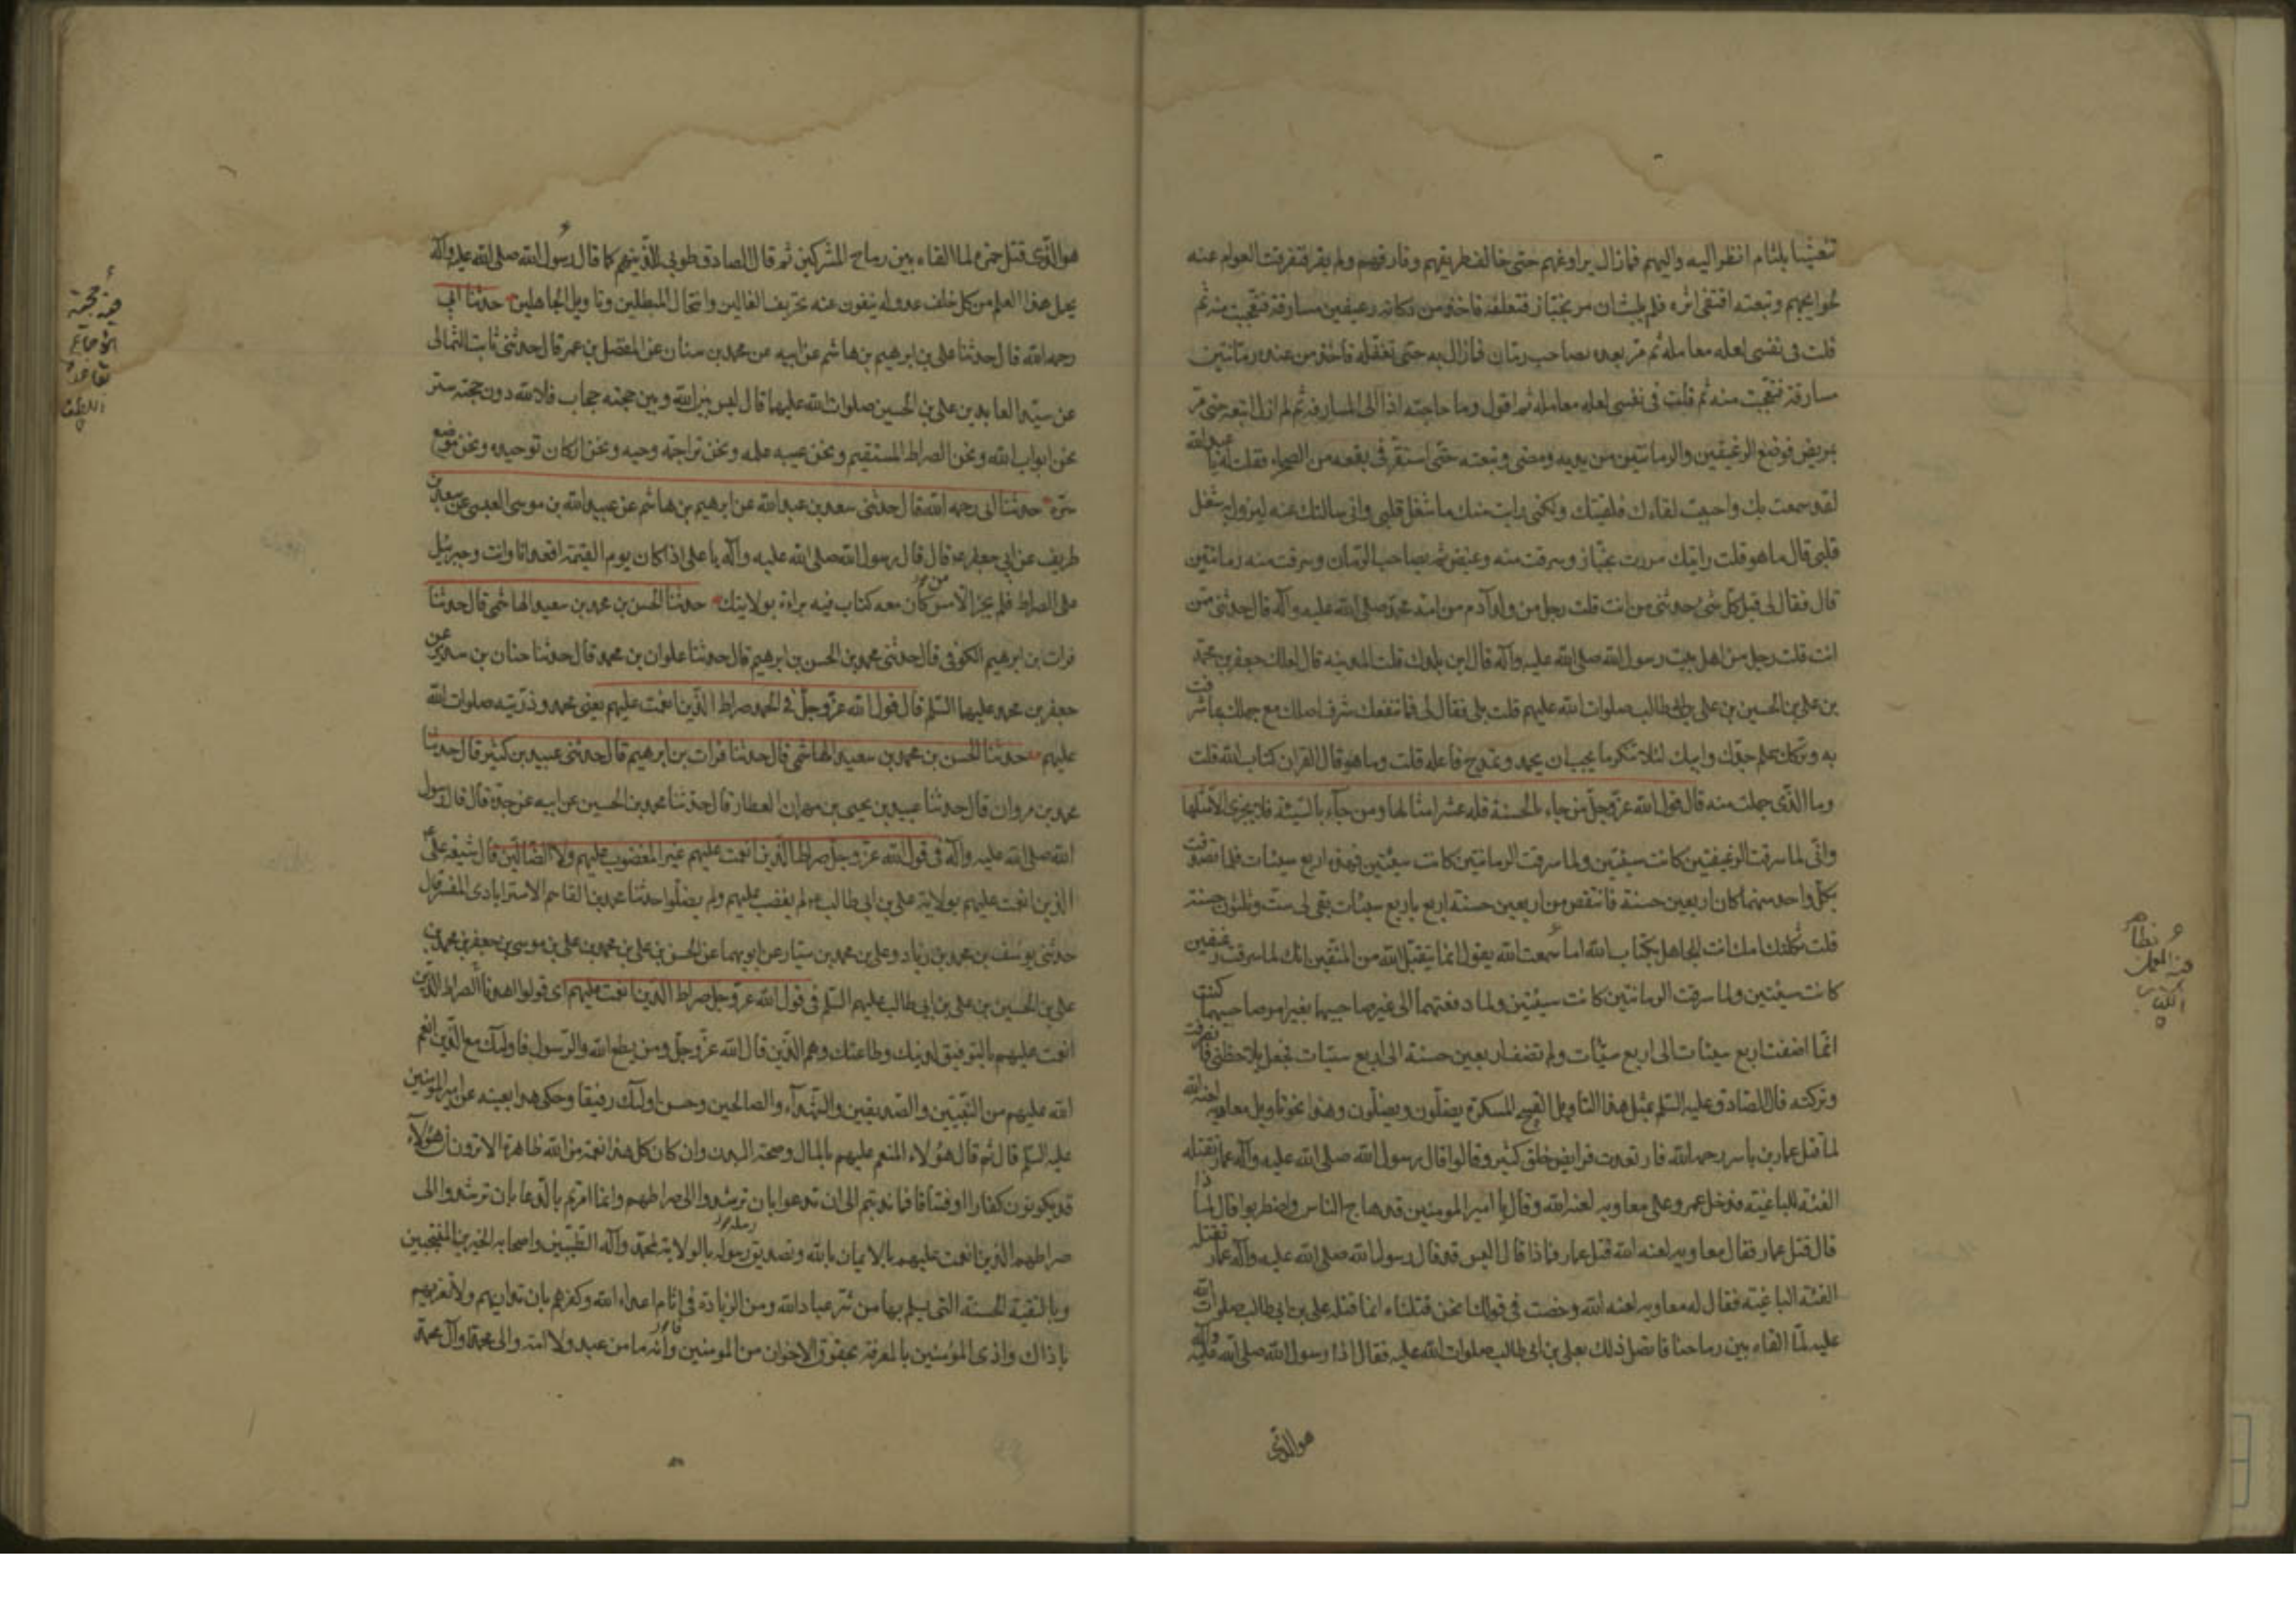 متغشيا بلثام انظر اليه واليهم فمازال يراوغهم حتى خالف طريقهم وفارقهم ولم يقر فتفرقت العوام عنه
لحوايجهم وتبعته اقتفى اثره فلم يلبث ان مر بخباز فتغفله فاخذ من دكانه رغيفين مسارقة فتعجبت منه ثم
قلت فى نفسى لعله معامله ثم مر بعده بصاحب رمان فمازال به حتى تغفله فاخذ من عنده رمانتين
مسارقة فتعجبت منه ثم قلت فى نفسى لعله معامله ثم اقول وما حاجته اذا الى المسارقة ثم لم ازل اتبعه حتى مر
بمريض فوضع الرغيفين والرمانتين بين يديه ومضى وتبعته حتى استقر فى بقعه من الصحراء فقلت له يا عبد الله
لقد سمعت بك واحببت لقاءك فلقيتك ولكنى رايت منك ما شغل قلبى وانى سالتك عنه ليزول به شغل
قلبى قال ما هو قلت رايتك مررت بخباز وسرقت منه رغيفين ثم بصاحب الرمان وسرقت منه رمانتين
قال فقال لى قبل كل شئ حدثنى من انت قلت رجل من ولد آدم من امة محمد صلى الله عليه وآله قال حدثنى ممن
انت قلت رجل من اهل بيت رسول الله صلى الله عليه وآله قال اين بلدك قلت المدينه قال لعلك جعفر بن محمد
بن على بن الحسين بن على بن ابى طالب صلوات الله عليهم قلت بلى فقال لى فما تنفعك شرف اصلك مع جهلك بما شرفت
به وتركك علم جدك وابيك لئلا تنكر ما يجب ان يحمد ويمدح فاعله قلت وما هو قال القران كتاب الله قلت
وما الذى جهلت منه قال قول الله عز وجل من جاء بالحسنة فله عشر امثالها ومن جآء بالسيئة فلا يجزى الا مثلها
وانى لما سرقت الرغيفين كانت سيئتين ولما سرقت الرمانتين كانت سيئتين فهذه اربع سيئات فلما تصدقت
بكل واحد منهما كان اربعين حسنة فانتقص من اربعين حسنة اربع باربع سيئات بقى لى ست وثلثون حسنة
قلت ثكلتك امك انت الجاهل بكتاب الله اما سمعت الله يقول انما يتقبل الله من المتقين انك لما سرقت رغيفين
كانت سيئتين ولما سرقت الرمانتين كانت سيئتين ولما دفعتهما الى غير صاحبيهما بغير امر صاحبيهما كنت
انما اضفت اربع سيئات الى اربع سيئات ولم تضف اربعين حسنة الى اربع سيئات فجعل يلاحظنى فانصرفت
وتركته قال الصادق عليه السلم بمثل هذا التاويل القبيح المستكره يضلون ويضلون وهذا نحو تاويل معاويه لعنه الله
لما قتل عمار بن ياسر رحمه الله فارتعدت فرايص خلق كثير وقالوا قال رسول الله صلى الله عليه وآله عمار تقتله
الفئة الباغية فدخل عمرو على معاويه لعنه الله وقال يا امير المومنين قد هاج الناس واضطربوا قال لماذا
قال قتل عمار فقال معاويه لعنه الله قتل عمار فماذا قال اليس قد قال رسول الله صلى الله عليه وآله عمار تقتله
الفئة الباغية فقال له معاويه لعنه الله دحضت فى قولك انحن قتلناه انما قتله على بن ابى طالب صلوات الله
عليه لما القاه بين رماحنا فاتصل ذلك بعلى بن ابى طالب صلوات الله عليه فقال اذا رسول الله صلى الله عليه وآله
هو الذى
هذه المولى
الكتاب
هو الذى قتل حمزه لما القاه بين رماح المشركين ثم قال الصادق طوبى للذين هم كما قال رسول الله صلى الله عليه وآله
يحمل هذا العلم من كل خلف عدوله ينفون عنه تحريف الغالين وانتحال المبطلين وتاويل الجاهلين حدثنا ابى
رحمه الله قال حدثنا على بن ابرهيم بن هاشم عن ابيه عن محمد بن سنان عن المفضل بن عمر قال حدثنى ثابت الثمالى
عن سيد العابدين على بن الحسين صلوات الله عليهما قال ليس بين الله وبين حجته حجاب فلا لله دون حجته ستر
نحن ابواب الله ونحن الصراط المستقيم ونحن عيبه علمه ونحن تراجمة وحيه ونحن اركان توحيده ونحن موضع
سره حدثنا ابى رحمه الله قال حدثنى سعد بن عبد الله عن ابرهيم بن هاشم عن عبيد الله بن موسى العبسى عن سعد بن
طريف عن ابى جعفر ع قال قال رسول الله صلى الله عليه وآله يا على اذا كان يوم القيمة اقعد انا وانت وجبرئيل
على الصراط فلم يجز الا من كان معه كتاب فيه براءة بولايتك حدثنا الحسن بن محمد بن سعيد الهاشمى قال حدثنا
فرات بن ابرهيم الكوفى قال حدثنى محمد بن الحسن بن ابرهيم قال حدثنا علوان بن محمد قال حدثنا حنان بن سدير عن
جعفر بن محمد عليهما السلم قال قول الله عز وجل فى الحمد صراط الذين انعمت عليهم يعنى محمد وذريته صلوات الله
عليهم حدثنا الحسن بن محمد بن سعيد الهاشمى قال حدثنا فرات بن ابرهيم قال حدثنى عبيد بن كثير قال حدثنا
محمد بن مروان قال حدثنا عبيد بن يحيى بن مهران العطار قال حدثنا محمد بن الحسين عن ابيه عن جده قال قال رسول
الله صلى الله عليه وآله فى قول الله عز وجل صراط الذين انعمت عليهم غير المغضوب عليهم ولا الضالين قال شيعه على
الذين انعمت عليهم بولاية على بن ابى طالب ع لم يغضب عليهم ولم يضلوا حدثنا محمد بن القاسم الاسترابادى المفسر قال
حدثنى يوسف بن محمد بن زياد وعلى بن محمد بن سيار عن ابويهما عن الحسن بن على بن محمد بن على بن موسى بن جعفر بن محمد بن
على بن الحسين بن على بن ابى طالب عليهم السلم فى قول الله عز وجل صراط الذين انعمت عليهم اى قولوا اهدنا الصراط الذين
انعمت عليهم بالتوفيق لدينك وطاعتك وهم الذين قال الله عز وجل ومن يطع الله والرسول فاولئك مع الذين انعم
الله عليهم من النبيين والصديقين والشهدآء والصالحين وحسن اولئك رفيقا وحكى هذا بعينه عن امير المومنين
عليه السلم قال ثم قال هؤلاء المنعم عليهم بالمال وصحة البدن وان كان كل هذا نعمة من الله ظاهرة الا ترون ان هؤلآء
قد يكونون كفارا او فساقا فما ندبتم الى ان تدعوا بان ترشدوا الى صراطهم وانما امرتم بالدعا بان ترشدوا الى
صراط الذين انعمت عليهم بالايمان بالله وتصديق رسوله بالولاية لمحمد وآله الطيبين واصحابه الخيرين المنتجبين
وبالتقية الحسنة التى يسلم بها من شر عباد الله ومن الزيادة فى اثام اعداء الله وكفرهم بان تداريهم ولا تغريهم
باذاك واذى المؤمنين بالمعرفة بحقوق الاخوان من المومنين فانه ما من عبد ولا امة والى محمدا وآل محمد